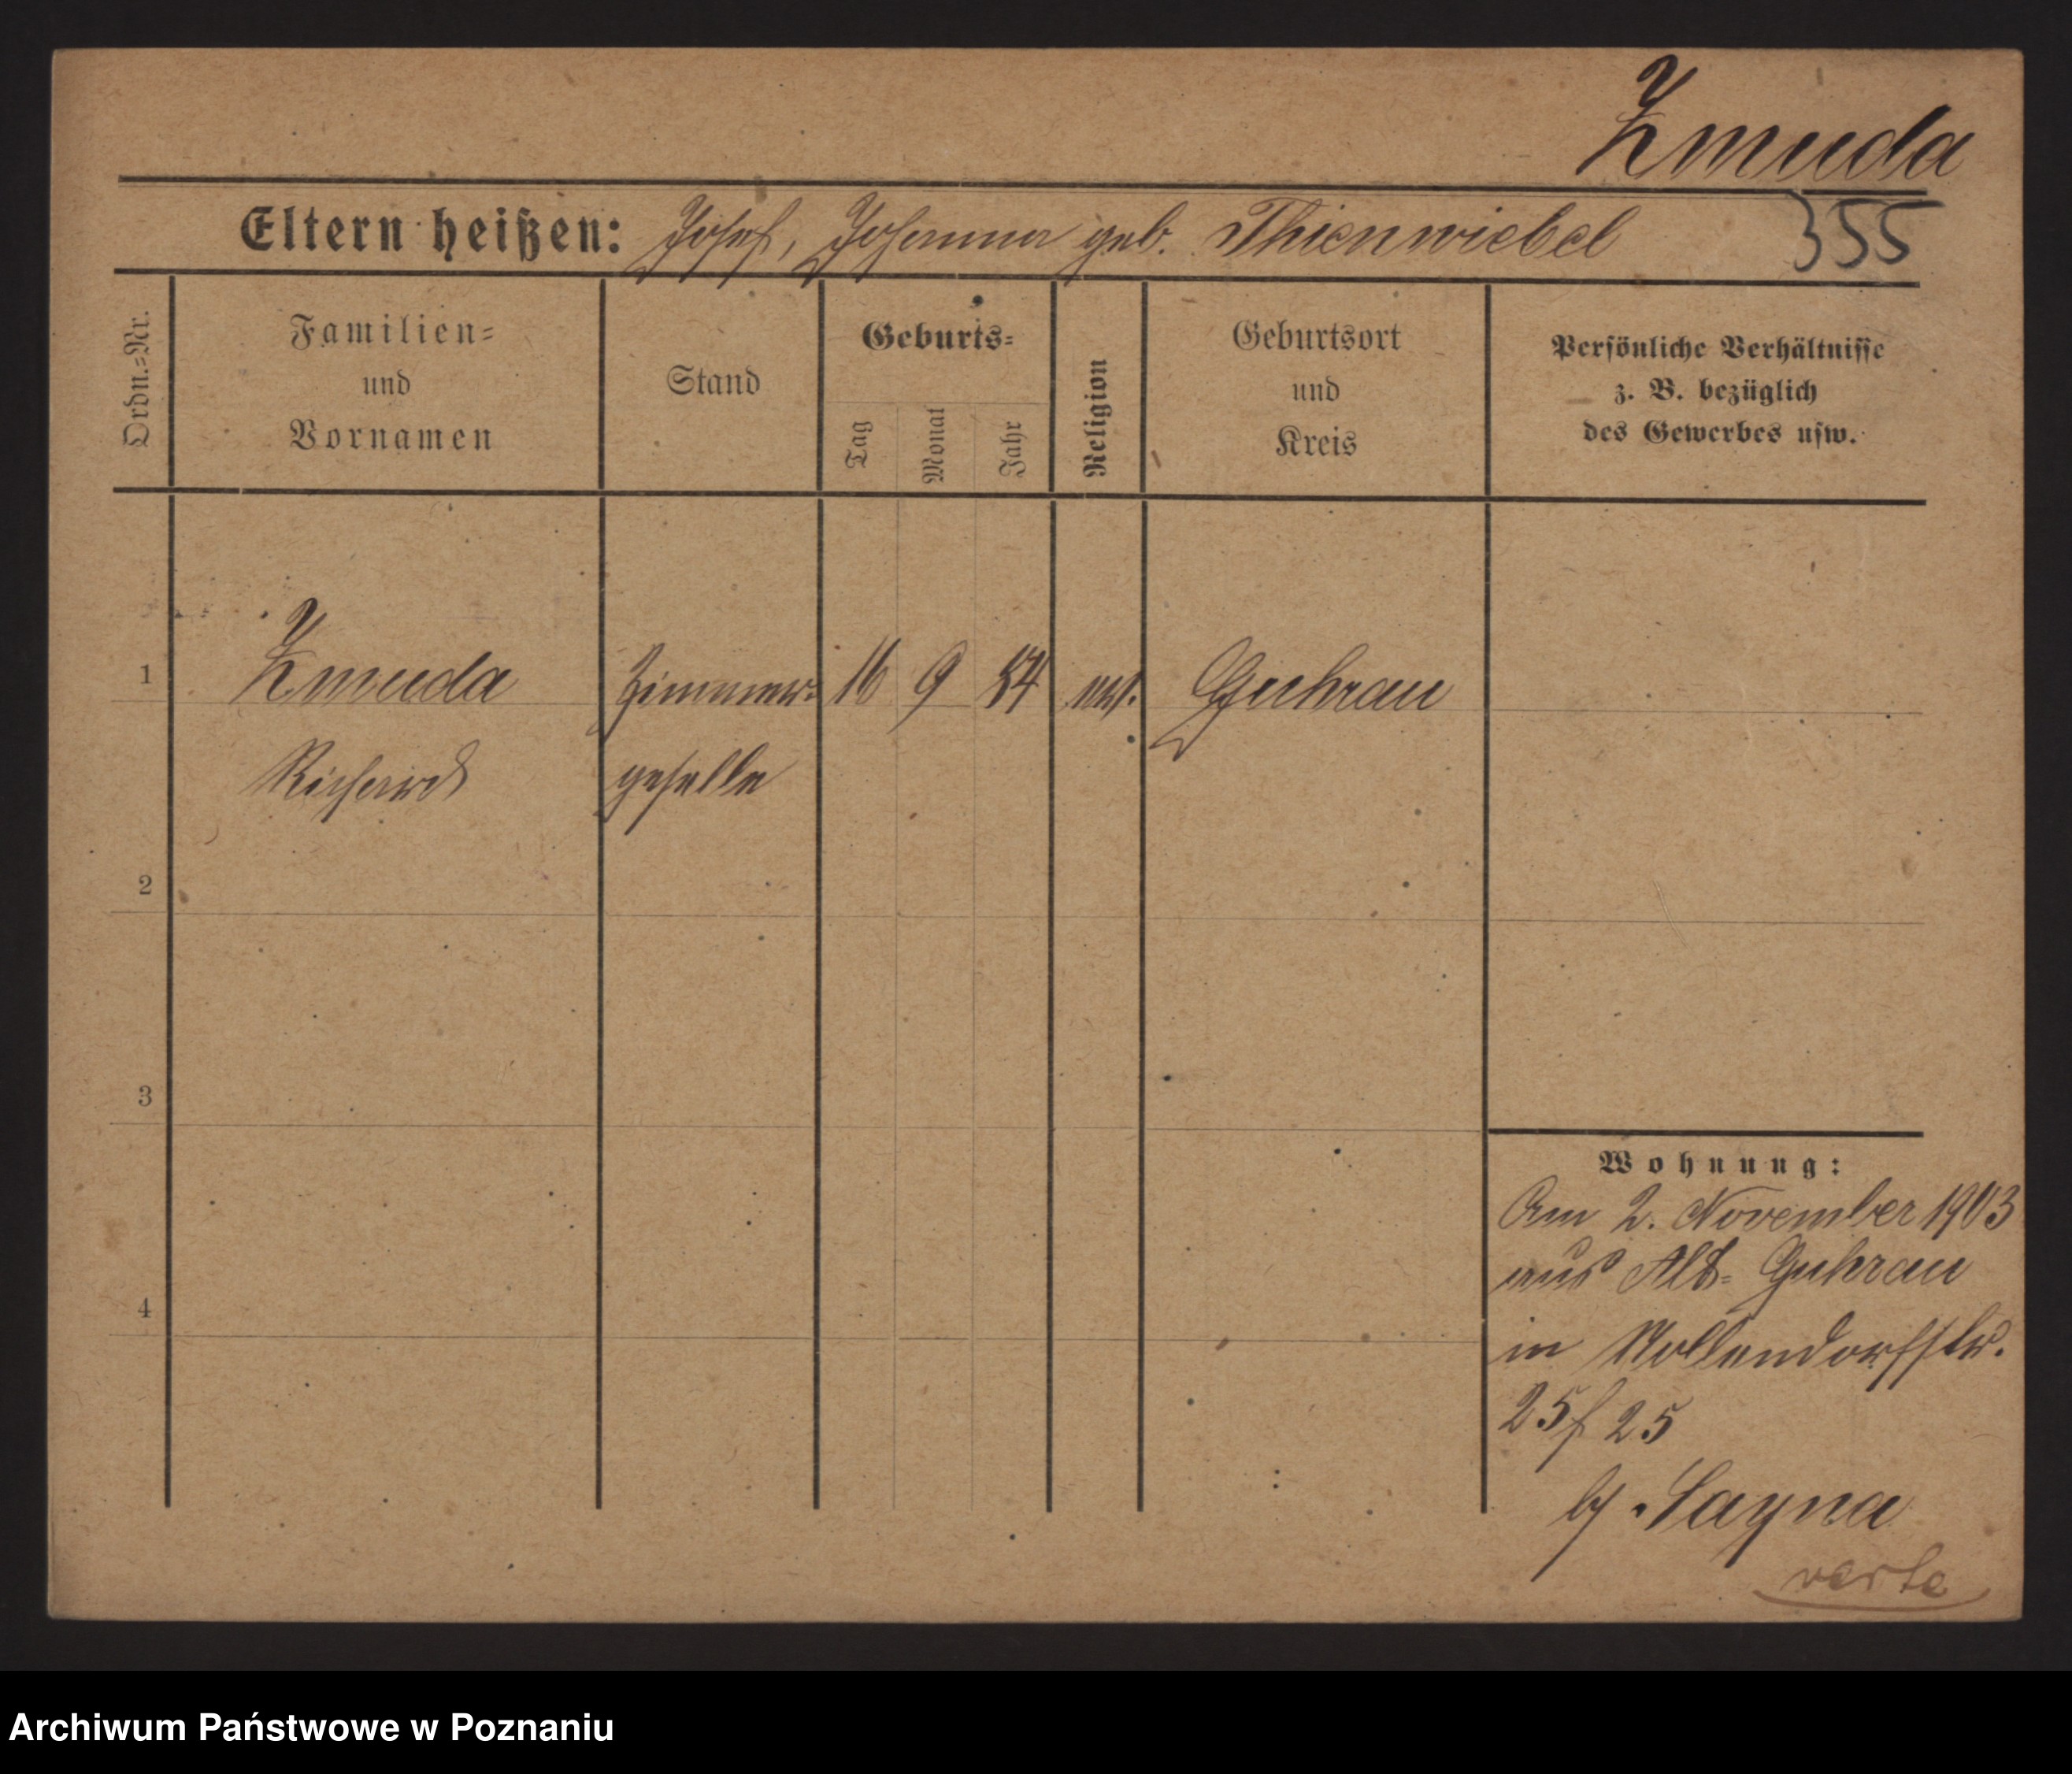 Zmuda
355
Eltern heißen: Josef, Johanna geb. Thienwiebel
Ordn.=Nr.
Familien=
und
Vornamen
Stand
Geburts=
Tag
Monat
Jahr
Religion
Geburtsort
und
Kreis
Persönliche Verhältnisse
z. B. bezüglich
des Gewerbes usw.
1
Zmuda
Zimmer=
16 9 84
Guhrau
Richard
geselle
2
3
4
Wohnung:
Am 2. November 1903
aus Alt= Guhrau
in Mollendorfstr.
25 f 25
b/ Sayna
verte
Archiwum Państwowe w Poznaniu